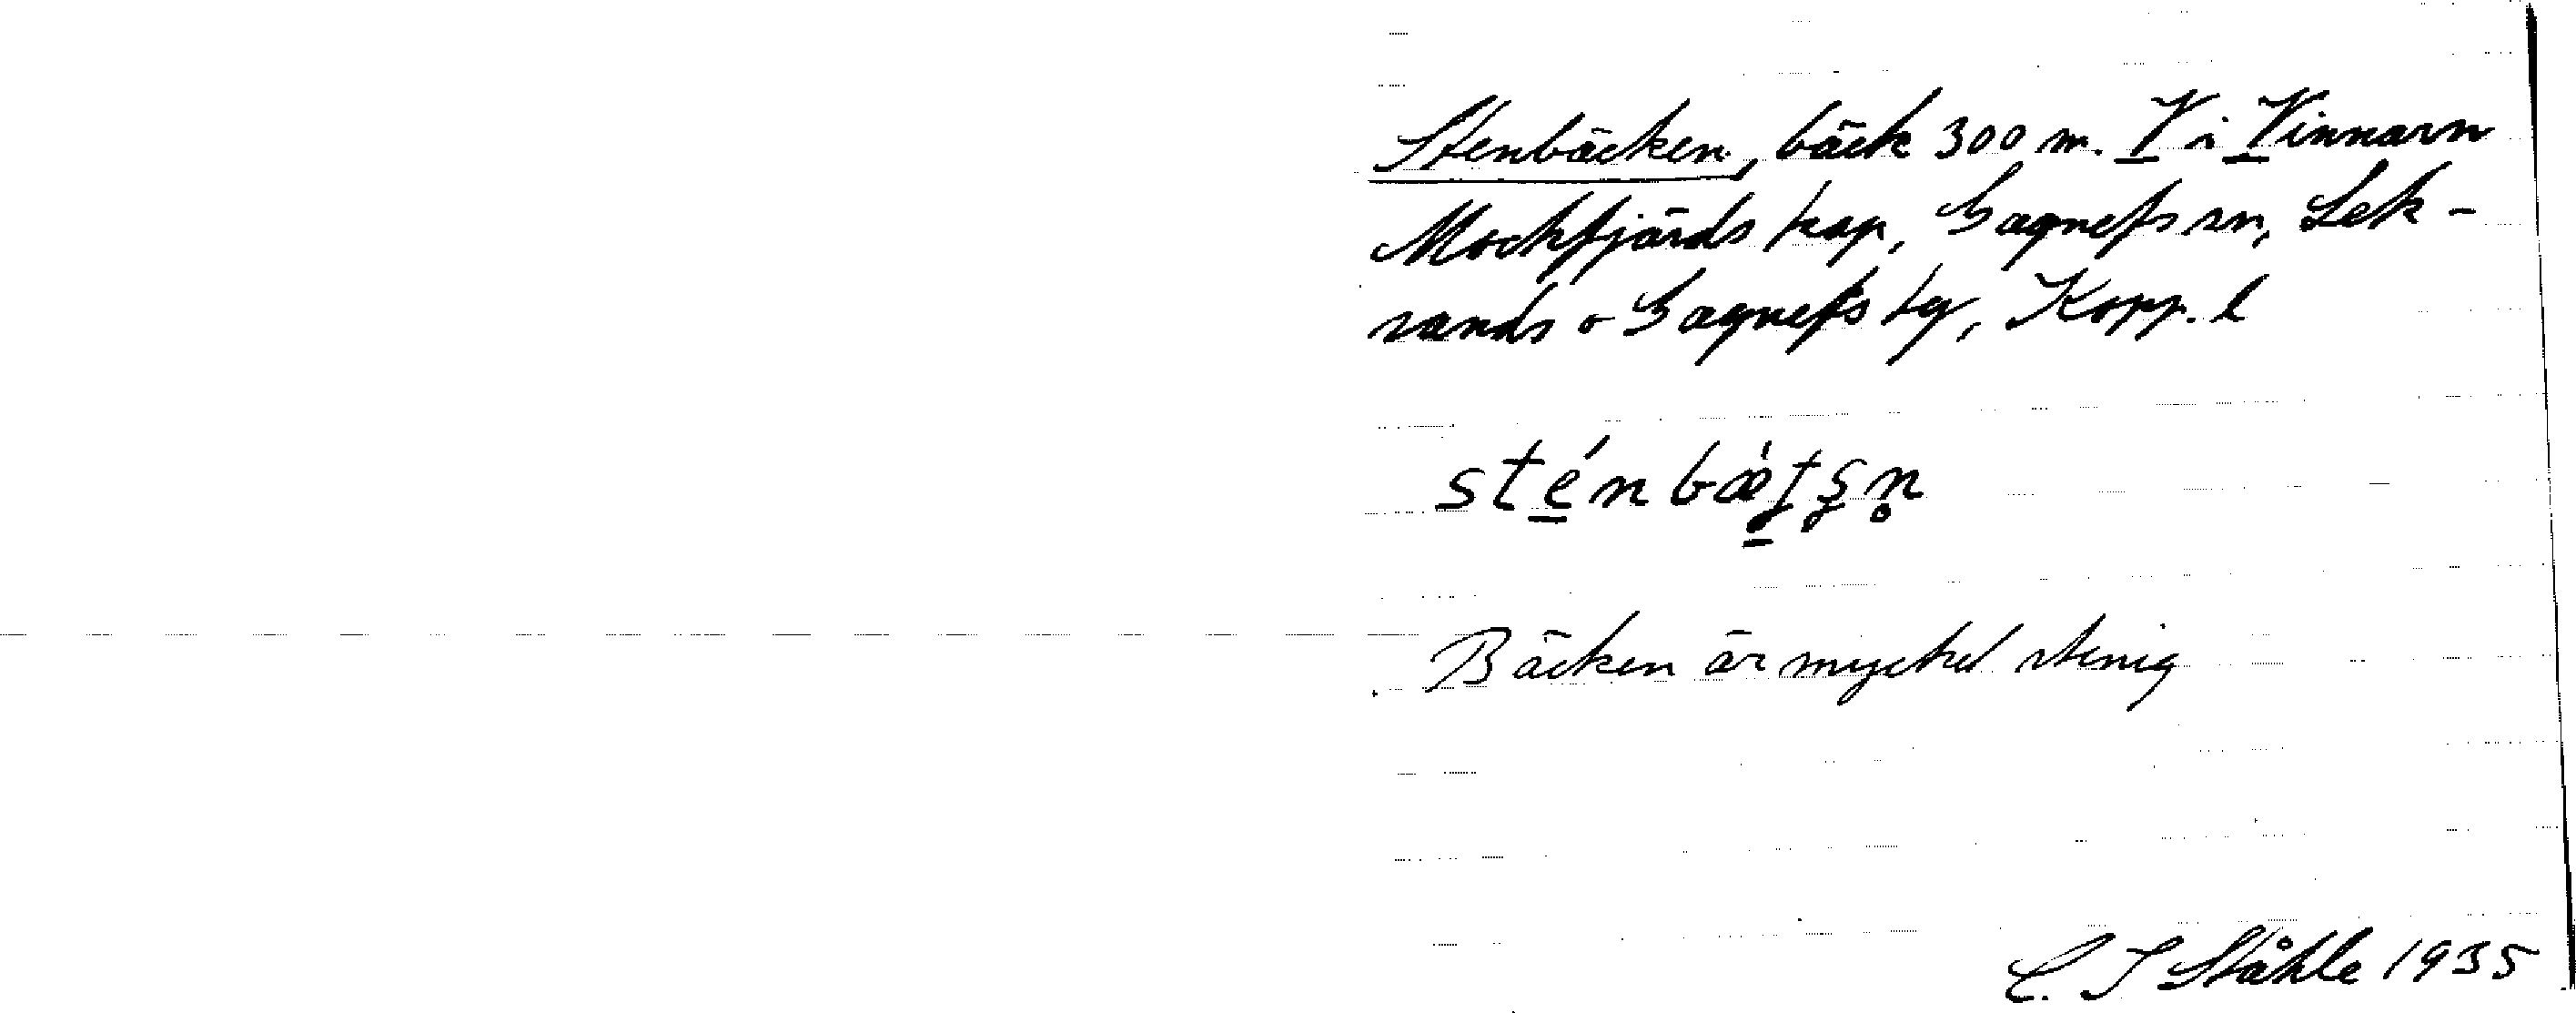 Stenbäcken, bäck 300 m. V i Vinnarn
Mockfjärds kap, Gagnefs sn, Lek-
sands o Gagnefs tg, Kopp. l
Bäcken är mycket stenig
C. I Ståhle 1935